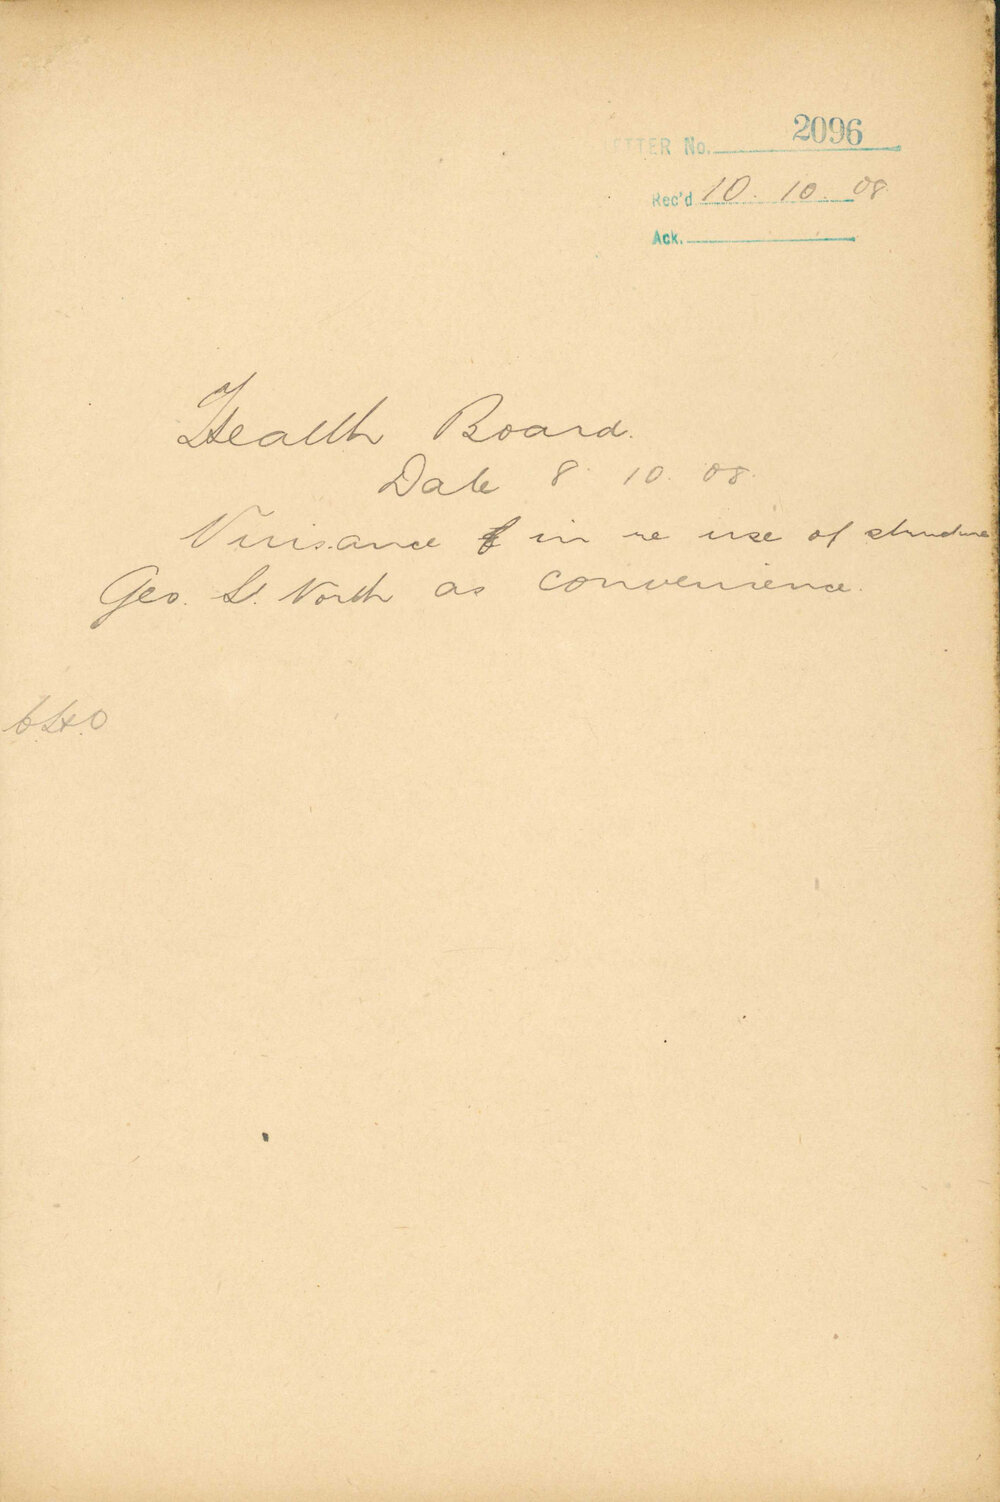 LETTER No. 2096
Rec'd 10. 10. 08.
Ack.
Health Board.
Date 8. 10. 08.
Nuisance in re use of structure
Geo. St. North as convenience.